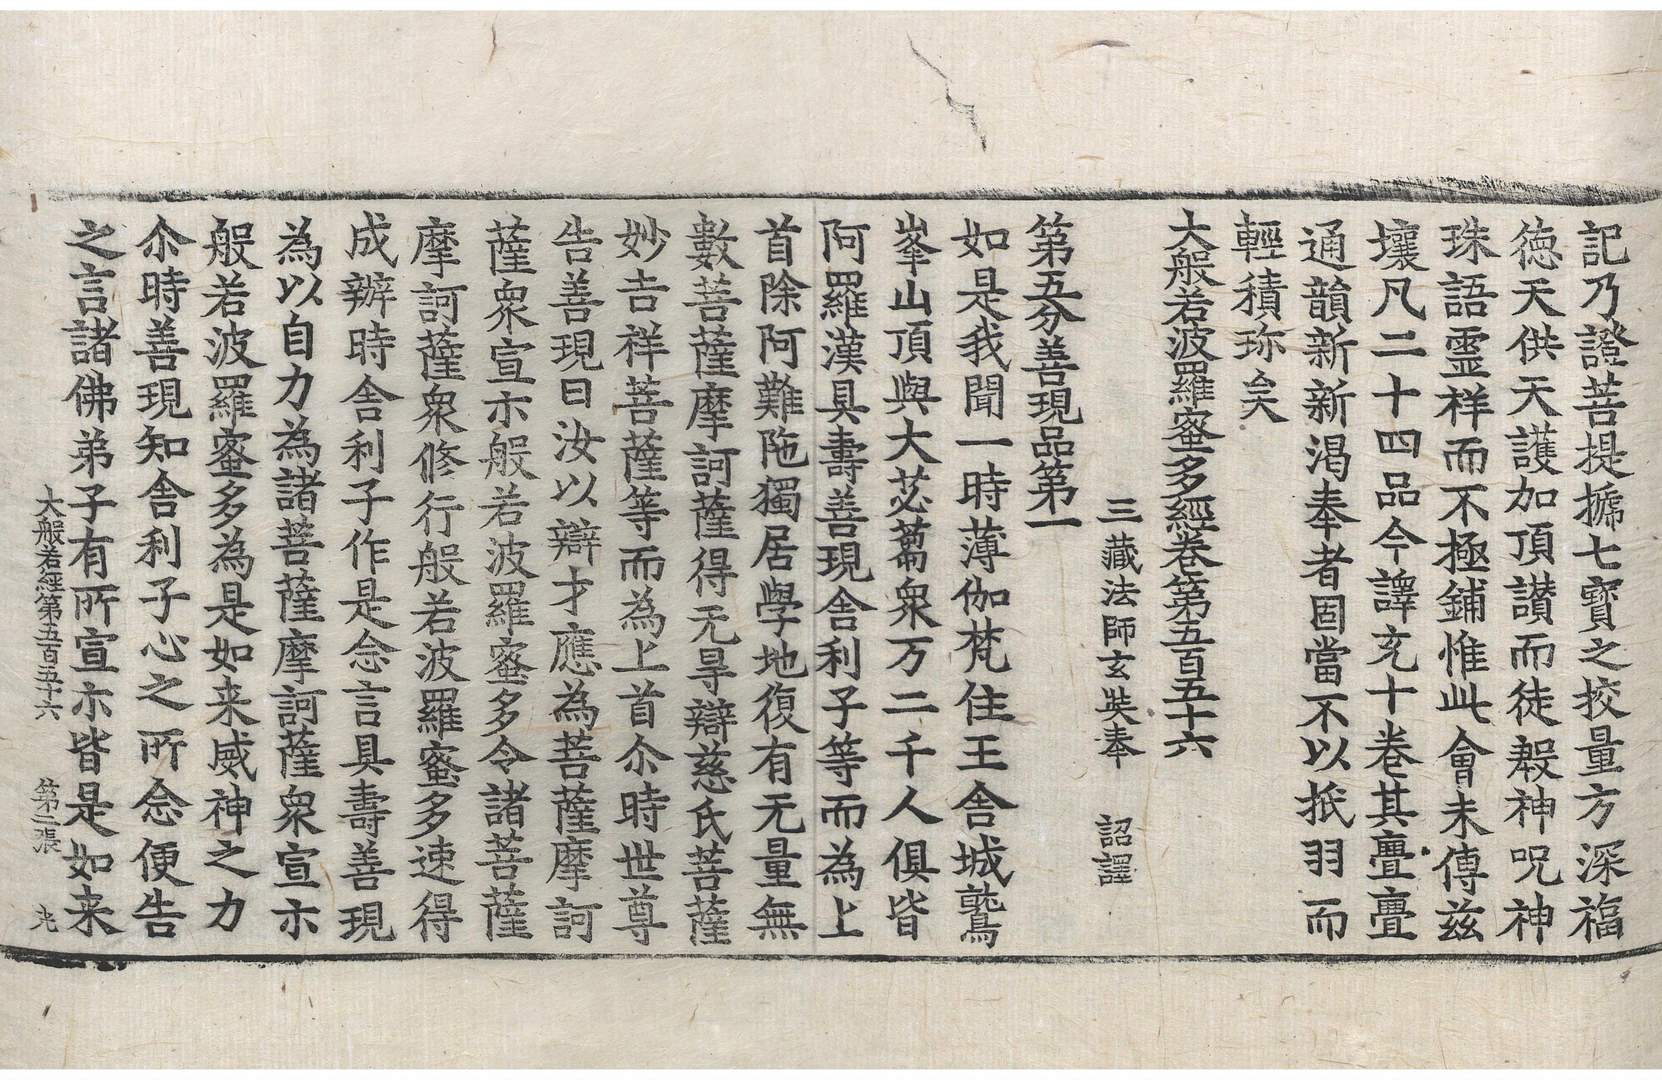 記乃證菩提摭七寶之挍量方深福
德天供天護加頂讃而徒殷神呪神
珠語靈祥而不極鋪惟此會未傳玆
壤凡二十四品今譯充十卷其亹亹
通韻新新渴奉者固當不以抵羽而
輕積珎矣
大般若波羅蜜多經卷第五百五十六
三藏法師玄奘奉　詔譯
第五分善現品第一
如是我聞一時薄伽梵住王舍城鷲
峯山頂與大苾蒭衆万二千人俱皆
阿羅漢具壽善現舍利子等而為上
首除阿難陁獨居學地復有无量無
數菩薩摩訶薩得无㝵辯慈氏菩薩
妙吉祥菩薩等而為上首尒時世尊
告善現曰汝以辯才應為菩薩摩訶
薩衆宣示般若波羅蜜多令諸菩薩
摩訶薩衆修行般若波羅蜜多速得
成辦時舍利子作是念言具壽善現
為以自力為諸菩薩摩訶薩衆宣示
般若波羅蜜多為是如来威神之力
尒時善現知舍利子心之所念便告
之言諸佛弟子有所宣示皆是如来
大般若經第五百五十六　第二張　光